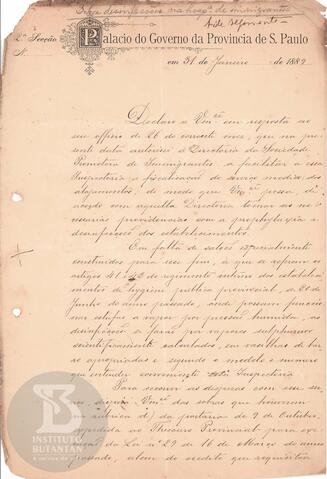 Sobre desinfecções na hosp. de immigrantes
2ª Secção
Palacio do Governo da Provincia de S. Paulo
N.
em 31 de Janeiro de 1889
Declaro a Vmcê, em resposta ao
seu officio de 26 do corrente mez, que na pre-
sente data autoriso a Directoria da Sociedade
Promotora de Immigrantes, a facilitar a essa
Inspectoria a fiscalisação do serviço medico, dos
alojamentos, de modo que Vmcê possa, de
accordo com aquella Directoria tomar as ne-
cessarias providencias com a prophylaxia e
desinfecção dos estabelecimentos.
Em falta de salões especialmente
construidos para esse fim, a que se referem os
artigos 41 do regimento interno dos estabeleci-
mentos de hygiene publica provincial, de 21 de
Junho do anno passado, onde possam funccio-
nar estufas a vapor por pressão humida, as
desinfecções a fazer por vapores sulphurosos
scientificamente calculados, em vasilhas de bar-
ro apropriadas e segundo o modelo e numero
que entender conveniente essa Inspectoria
Para occorrer as despezas com esse ser-
viço, disporá Vmcê das sobras que houverem
na rubrica da portaria de 9 de Outubro,
expedida ao Thesouro Provincial para exe-
cução da Lei nº 29 de 16 de Março do anno
passado, alem do credito que requisitou
INSTITUTO
BUTANTAN
A serviço da vida